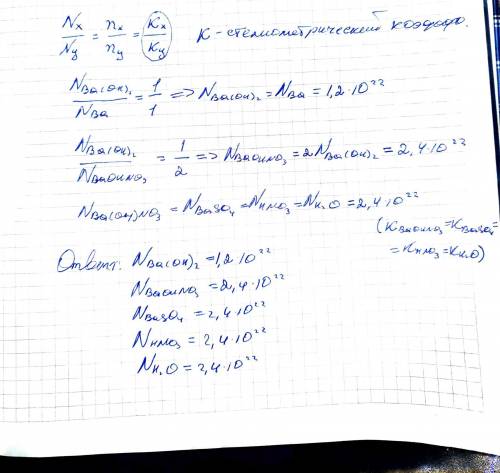 Nx/Ny = nx/ny = Kx/Ky K - стехиометрический коэфф.
NBa(OH)2/NBa = 1/1 => NBa(OH)2 = NBa = 1,2·10²²
NBa(OH)2/NBaOHNO3 = 1/2 => NBaOHNO3 = 2NBa(OH)2 = 2,4·10²²
NBa(OH)NO3 = NBaSO4 = NHNO3 = NH2O = 2,4·10²²
(KBaOHNO3 = KBaSO4 =
= KHNO3 = KH2O)
Ответ: NBa(OH)2 = 1,2·10²²
NBaOHNO3 = 2,4·10²²
NBaSO4 = 2,4·10²²
NHNO3 = 2,4·10²²
NH2O = 2,4·10²²